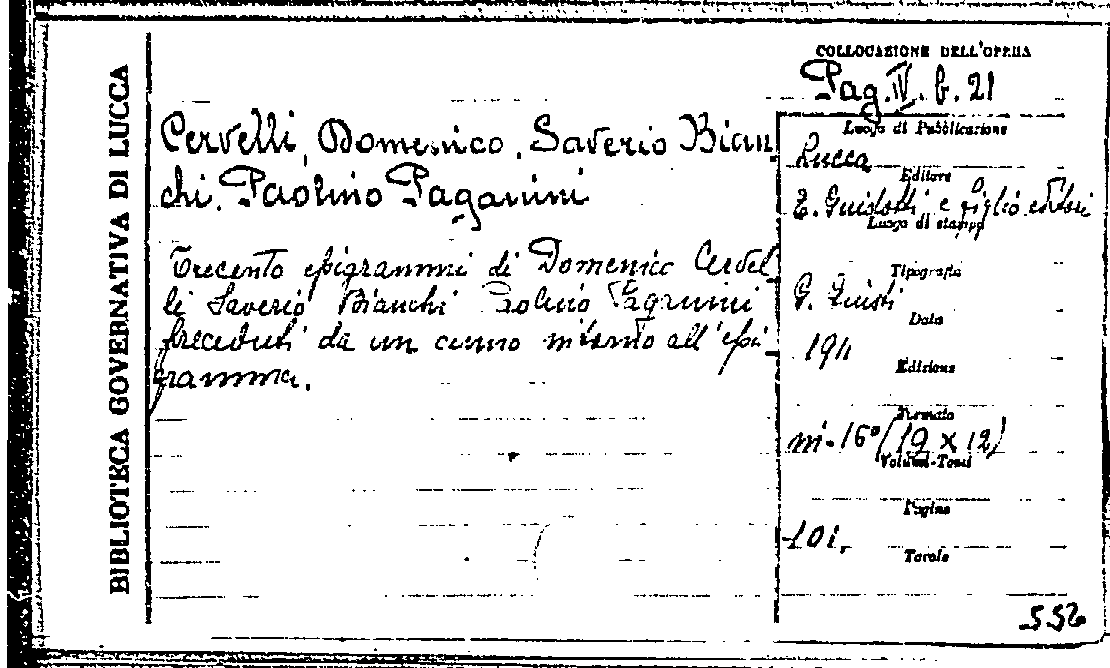 BIBLIOTECA GOVERNATIVA DI LUCCA
COLLOCAZIONE DELL'OPERA
Pag. IV. b. 21
Cervelli, Domenico, Saverio Bian
chi, Paolino Paganini
Trecento epigrammi di Domenico Cervel
li Saverio Bianchi Paolino Paganini
preceduti da un cenno intorno all'epi
gramma.
Luogo di Pubblicazione
Lucca
Editore
Guidotti e figlio editori
Luogo di stampa
Tipografia
G. Giusti
Data
1911
Edizione
Formato
in-16° (19 x 12)
Volumi-Tomi
Pagine
101.
Tavole
552